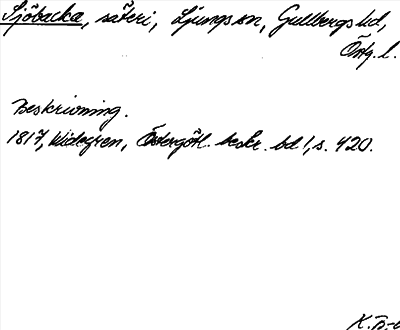 Sjöbacka, säteri, Ljungs sn, Gullbergs hd,
Östg. l.
Beskrivning.
1817, Widegren, Östergötl. beskr. bd 1, s. 420.